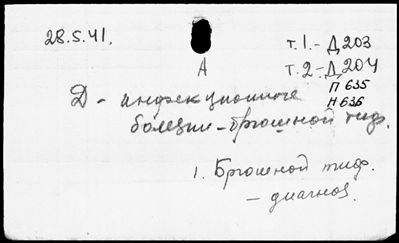 28.5.41.
т.1.- Д203
А
т.2-Д204
П 635
Н 636
Д - инфекционные
болезни - брюшной тиф.
1. Брюшной тиф.
- диагноз.